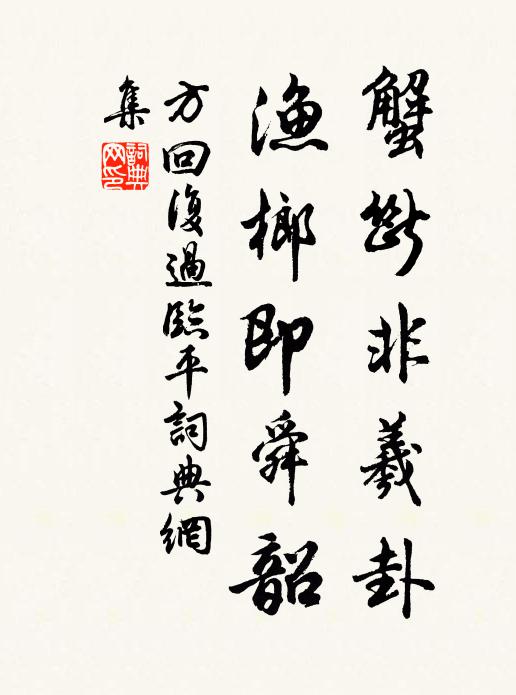 蟹斷非羲卦
漁榔即舜韶
方回復過臨平詞典網
集
詞典网印